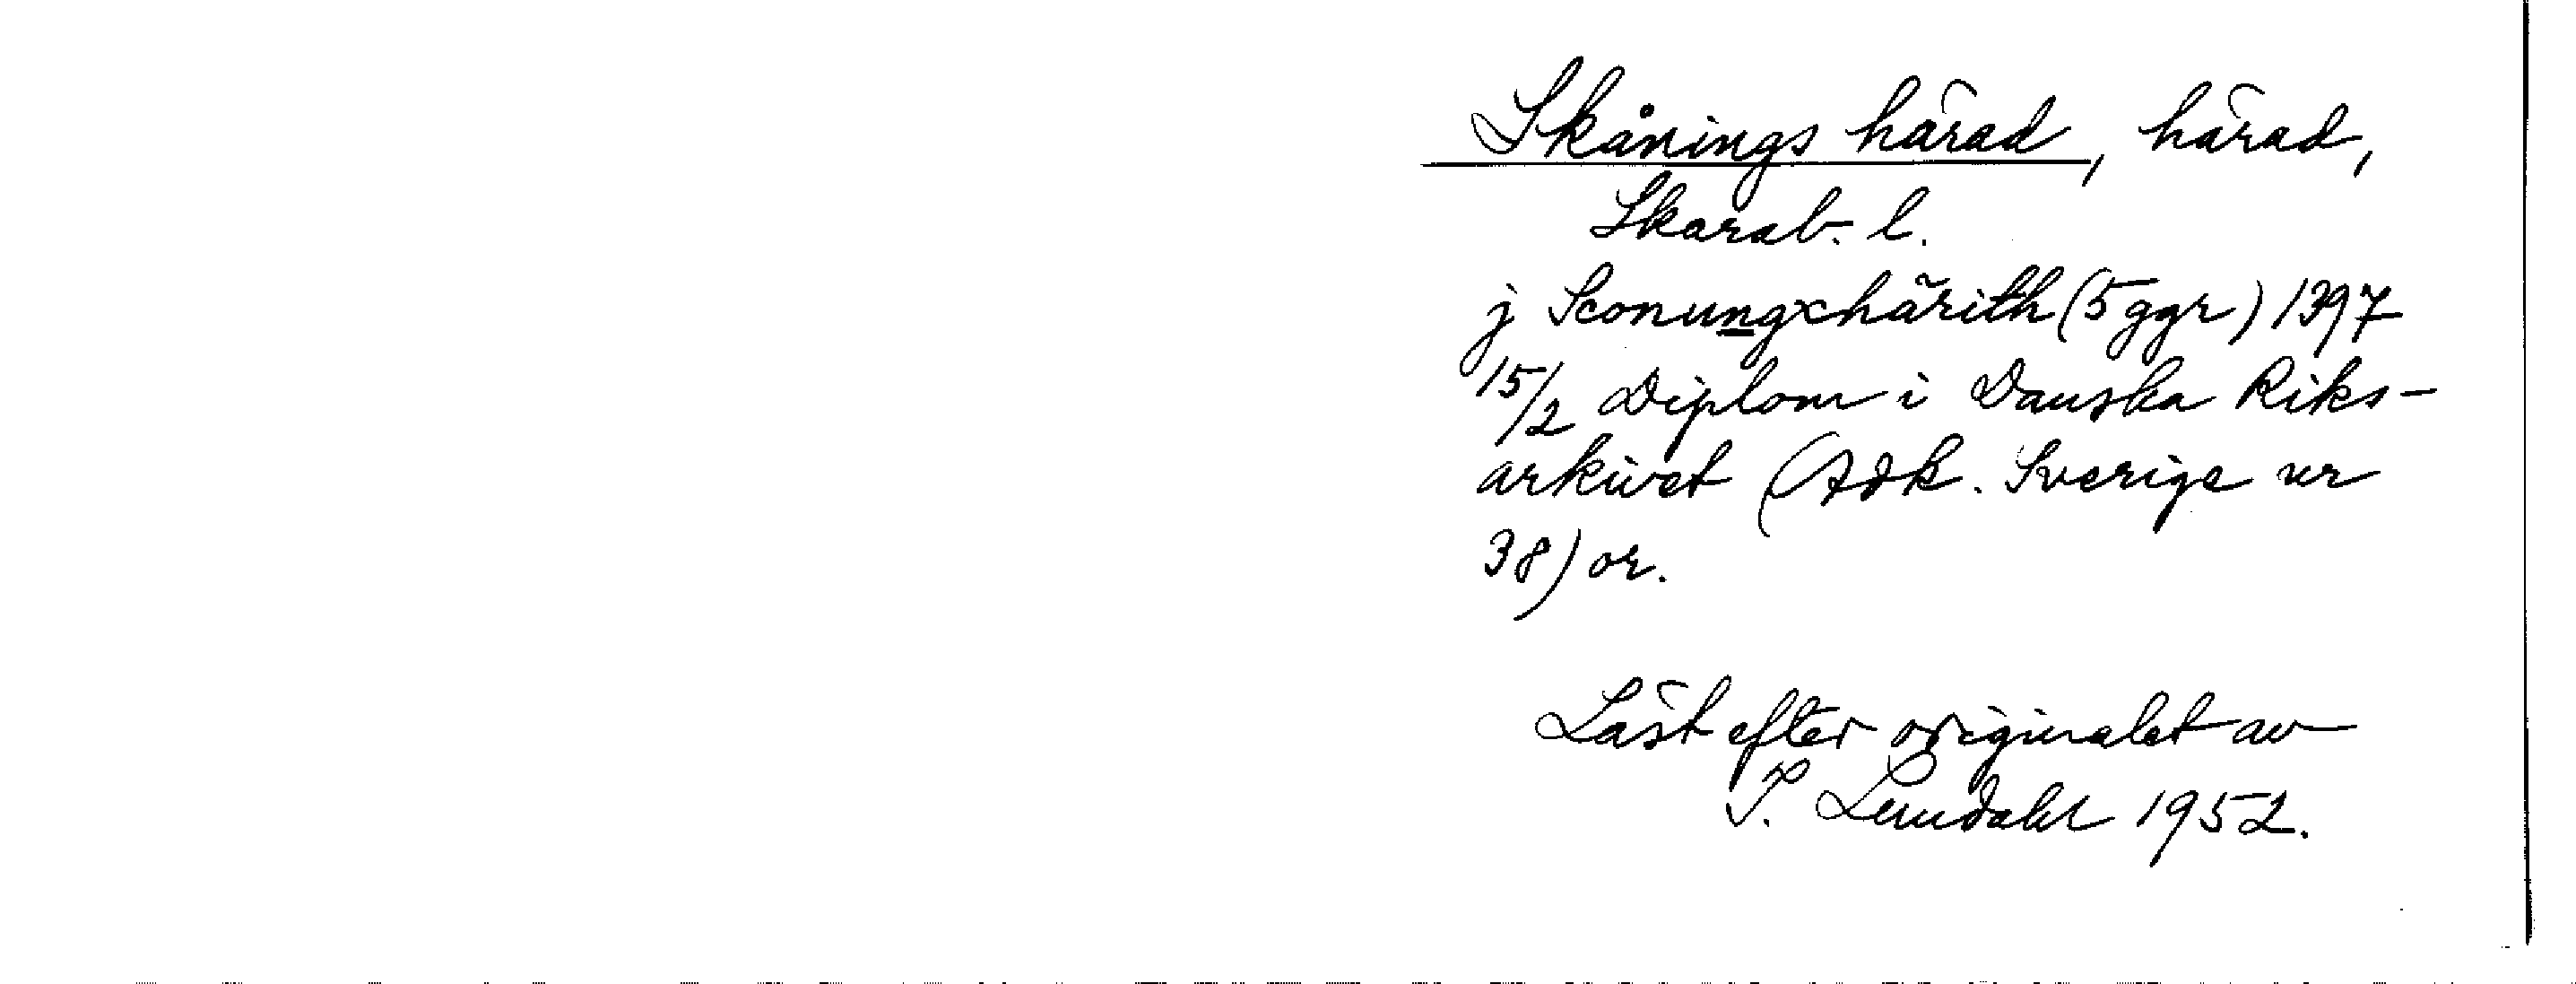 Skånings härad, härad,
Skarab. l.
j Sconungxhärith (5 ggr) 1397
15/2 Diplom i Danska Riks-
arkivet (Adk. Sverige nr
38) or.
Läst efter originalet av
T. Lundahl 1952.